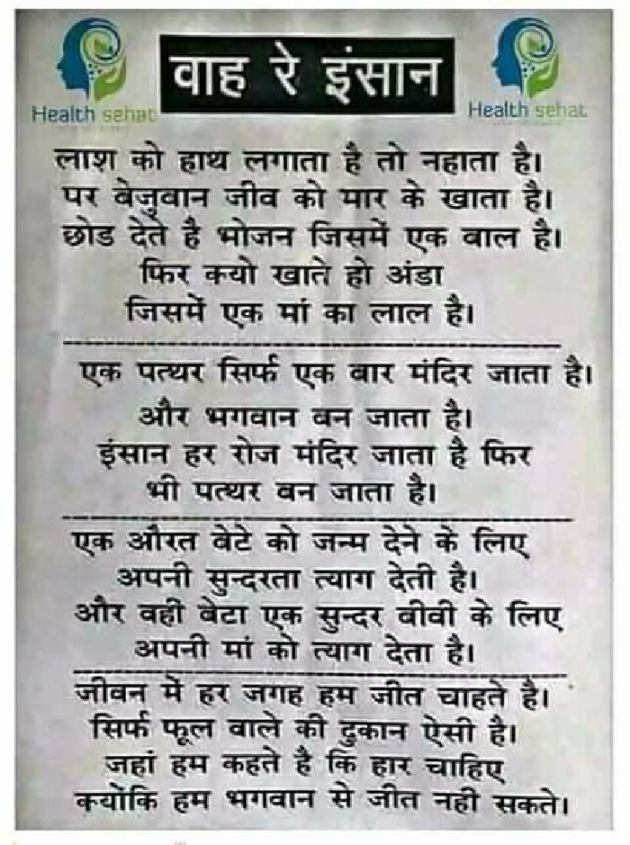 Health sehat
वाह रे इंसान
Health sehat
लाश को हाथ लगाता है तो नहाता है।
पर वेजुवान जीव को मार के खाता है।
छोड देते है भोजन जिसमें एक वाल है।
फिर क्यो खाते हो अंडा
जिसमें एक मां का लाल है।
एक पत्थर सिर्फ एक वार मंदिर जाता है।
और भगवान वन जाता है।
इंसान हर रोज मंदिर जाता है फिर
भी पत्थर वन जाता है।
एक औरत वेटे को जन्म देने के लिए
अपनी सुन्दरता त्याग देती है।
और वही वेटा एक सुन्दर वीवी के लिए
अपनी मां को त्याग देता है।
जीवन में हर जगह हम जीत चाहते है।
सिर्फ फूल वाले की दुकान ऐसी है।
जहां हम कहते है कि हार चाहिए
क्योंकि हम भगवान से जीत नही सकते।